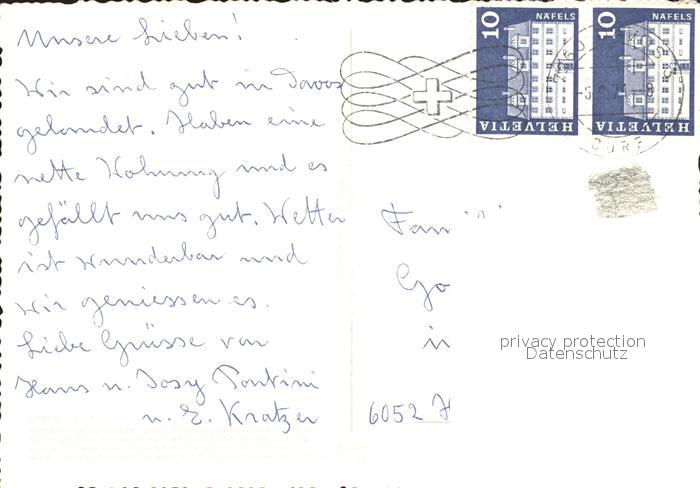 Unsere Lieben!
Wir sind gut in Davos
gelandet. Haben eine
nette Wohnung und es
gefällt uns gut. Wetter
ist wunderbar und
wir geniessen es.
Liebe Grüsse von
Hans u. Josy Pontini
u. E. Kratzer
10 NÄFELS HELVETIA
10 NÄFELS HELVETIA
DORF
Fam
Go
in
6052 H
privacy protection
Datenschutz